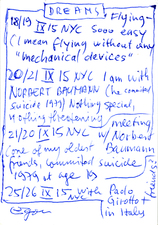 DREAMS
18/19 IX 15 NYC Flying-
sooo easy
(I mean flying without any
"mechanical devices"
20/21 IX 15 NYC I am with
NORBERT BAUMANN (he commited
suicide 1979) Nothing special,
nothing threatening
21/20 IX 15 NYC meeting
w/ Norbert
(one of my oldest Baumann
friends, committed suicide
1979 at age
25/26 IX 15, with Paolo
NYC Girotto +
in Italy